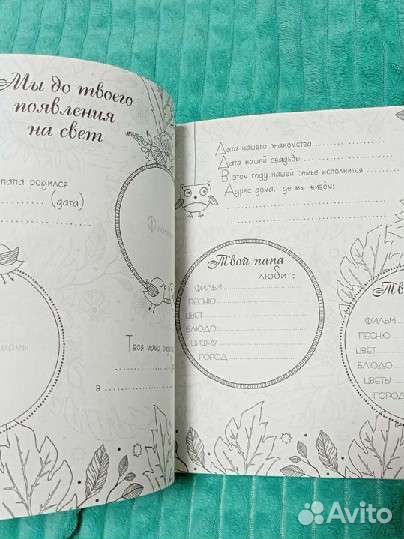 Мы до твоего
появления
на свет
папа родился
(дата)
Твоя мама
в
Дата нашего знакомства
Дата нашей свадьбы
В этом году нашей семье исполнится
Адрес дома, где мы живём:
Твой папа
любит:
ФИЛЬМ
ПЕСНЮ
ЦВЕТ
БЛЮДО
ЦИФРУ
ГОРОД
ФИЛЬМ
ПЕСНЮ
ЦВЕТ
БЛЮДО
ЦВЕТЫ
ГОРОД
Avito